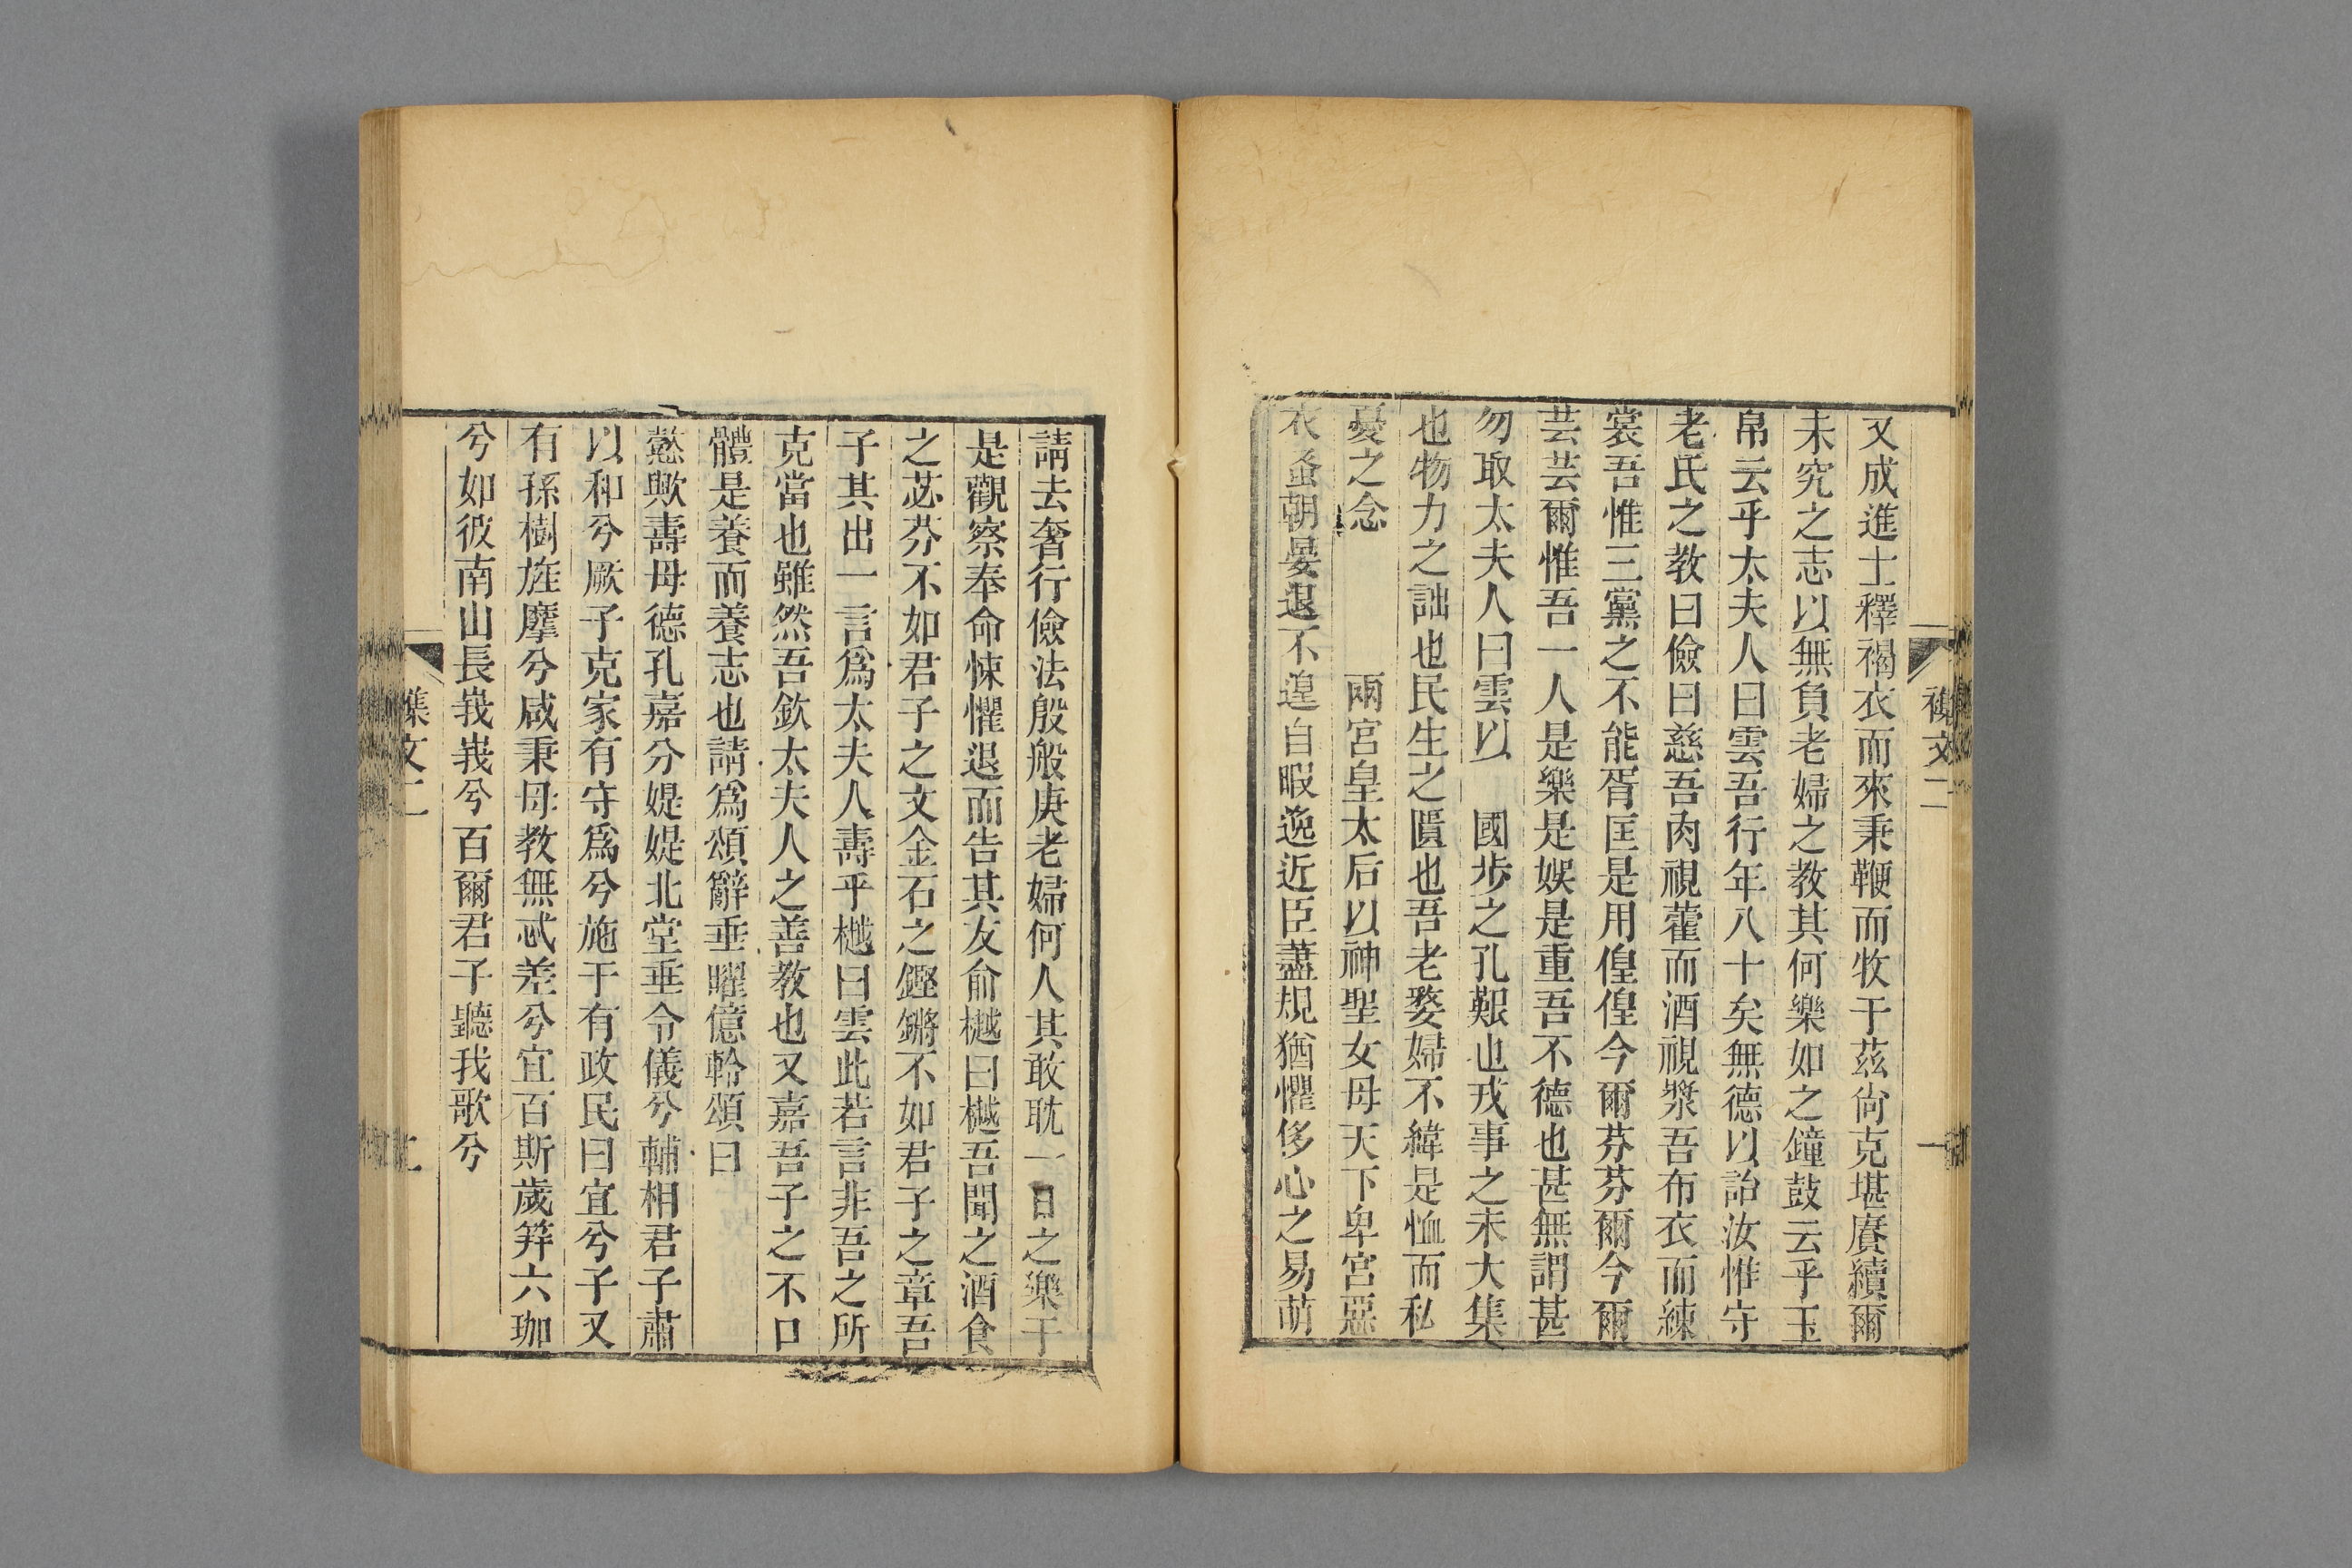 襍文二
一
又成進士釋褐衣而來秉鞭而牧于茲尙克堪賡續爾
未究之志以無負老婦之教其何樂如之鐘鼓云乎玉
帛云乎太夫人曰雲吾行年八十矣無德以詒汝惟守
老氏之教曰儉曰慈吾肉視藿而酒視漿吾布衣而練
裳吾惟三黨之不能胥匡是用偟偟今爾芬芬爾今爾
芸芸爾惟吾一人是樂是娛是重吾不德也甚無謂甚
勿取太夫人曰雲以 國步之孔艱也戎事之未大集
也物力之詘也民生之匱也吾老嫠婦不緯是恤而私
憂之念 兩宮皇太后以神聖女母天下卑宮惡
衣蚤朝晏退不遑自暇逸近臣藎規猶懼侈心之易萌
請去奢行儉法殷般庚老婦何人其敢耽一日之樂于
是觀察奉命悚懼退而告其友俞樾曰樾吾聞之酒食
之苾芬不如君子之文金石之鏗鏘不如君子之章吾
子其出一言爲太夫人壽乎樾曰雲此若言非吾之所
克當也雖然吾欽太夫人之善教也又嘉吾子之不口
體是養而養志也請爲頌辭垂曜億軨頌曰
懿歟壽母德孔嘉兮媞媞北堂垂令儀兮輔相君子肅
以和兮厥子克家有守爲兮施于有政民曰宜兮子又
有孫樹旌麾兮咸秉母教無忒差兮宜百斯歲笄六珈
兮如彼南山長峩峩兮百爾君子聽我歌兮
襍文二